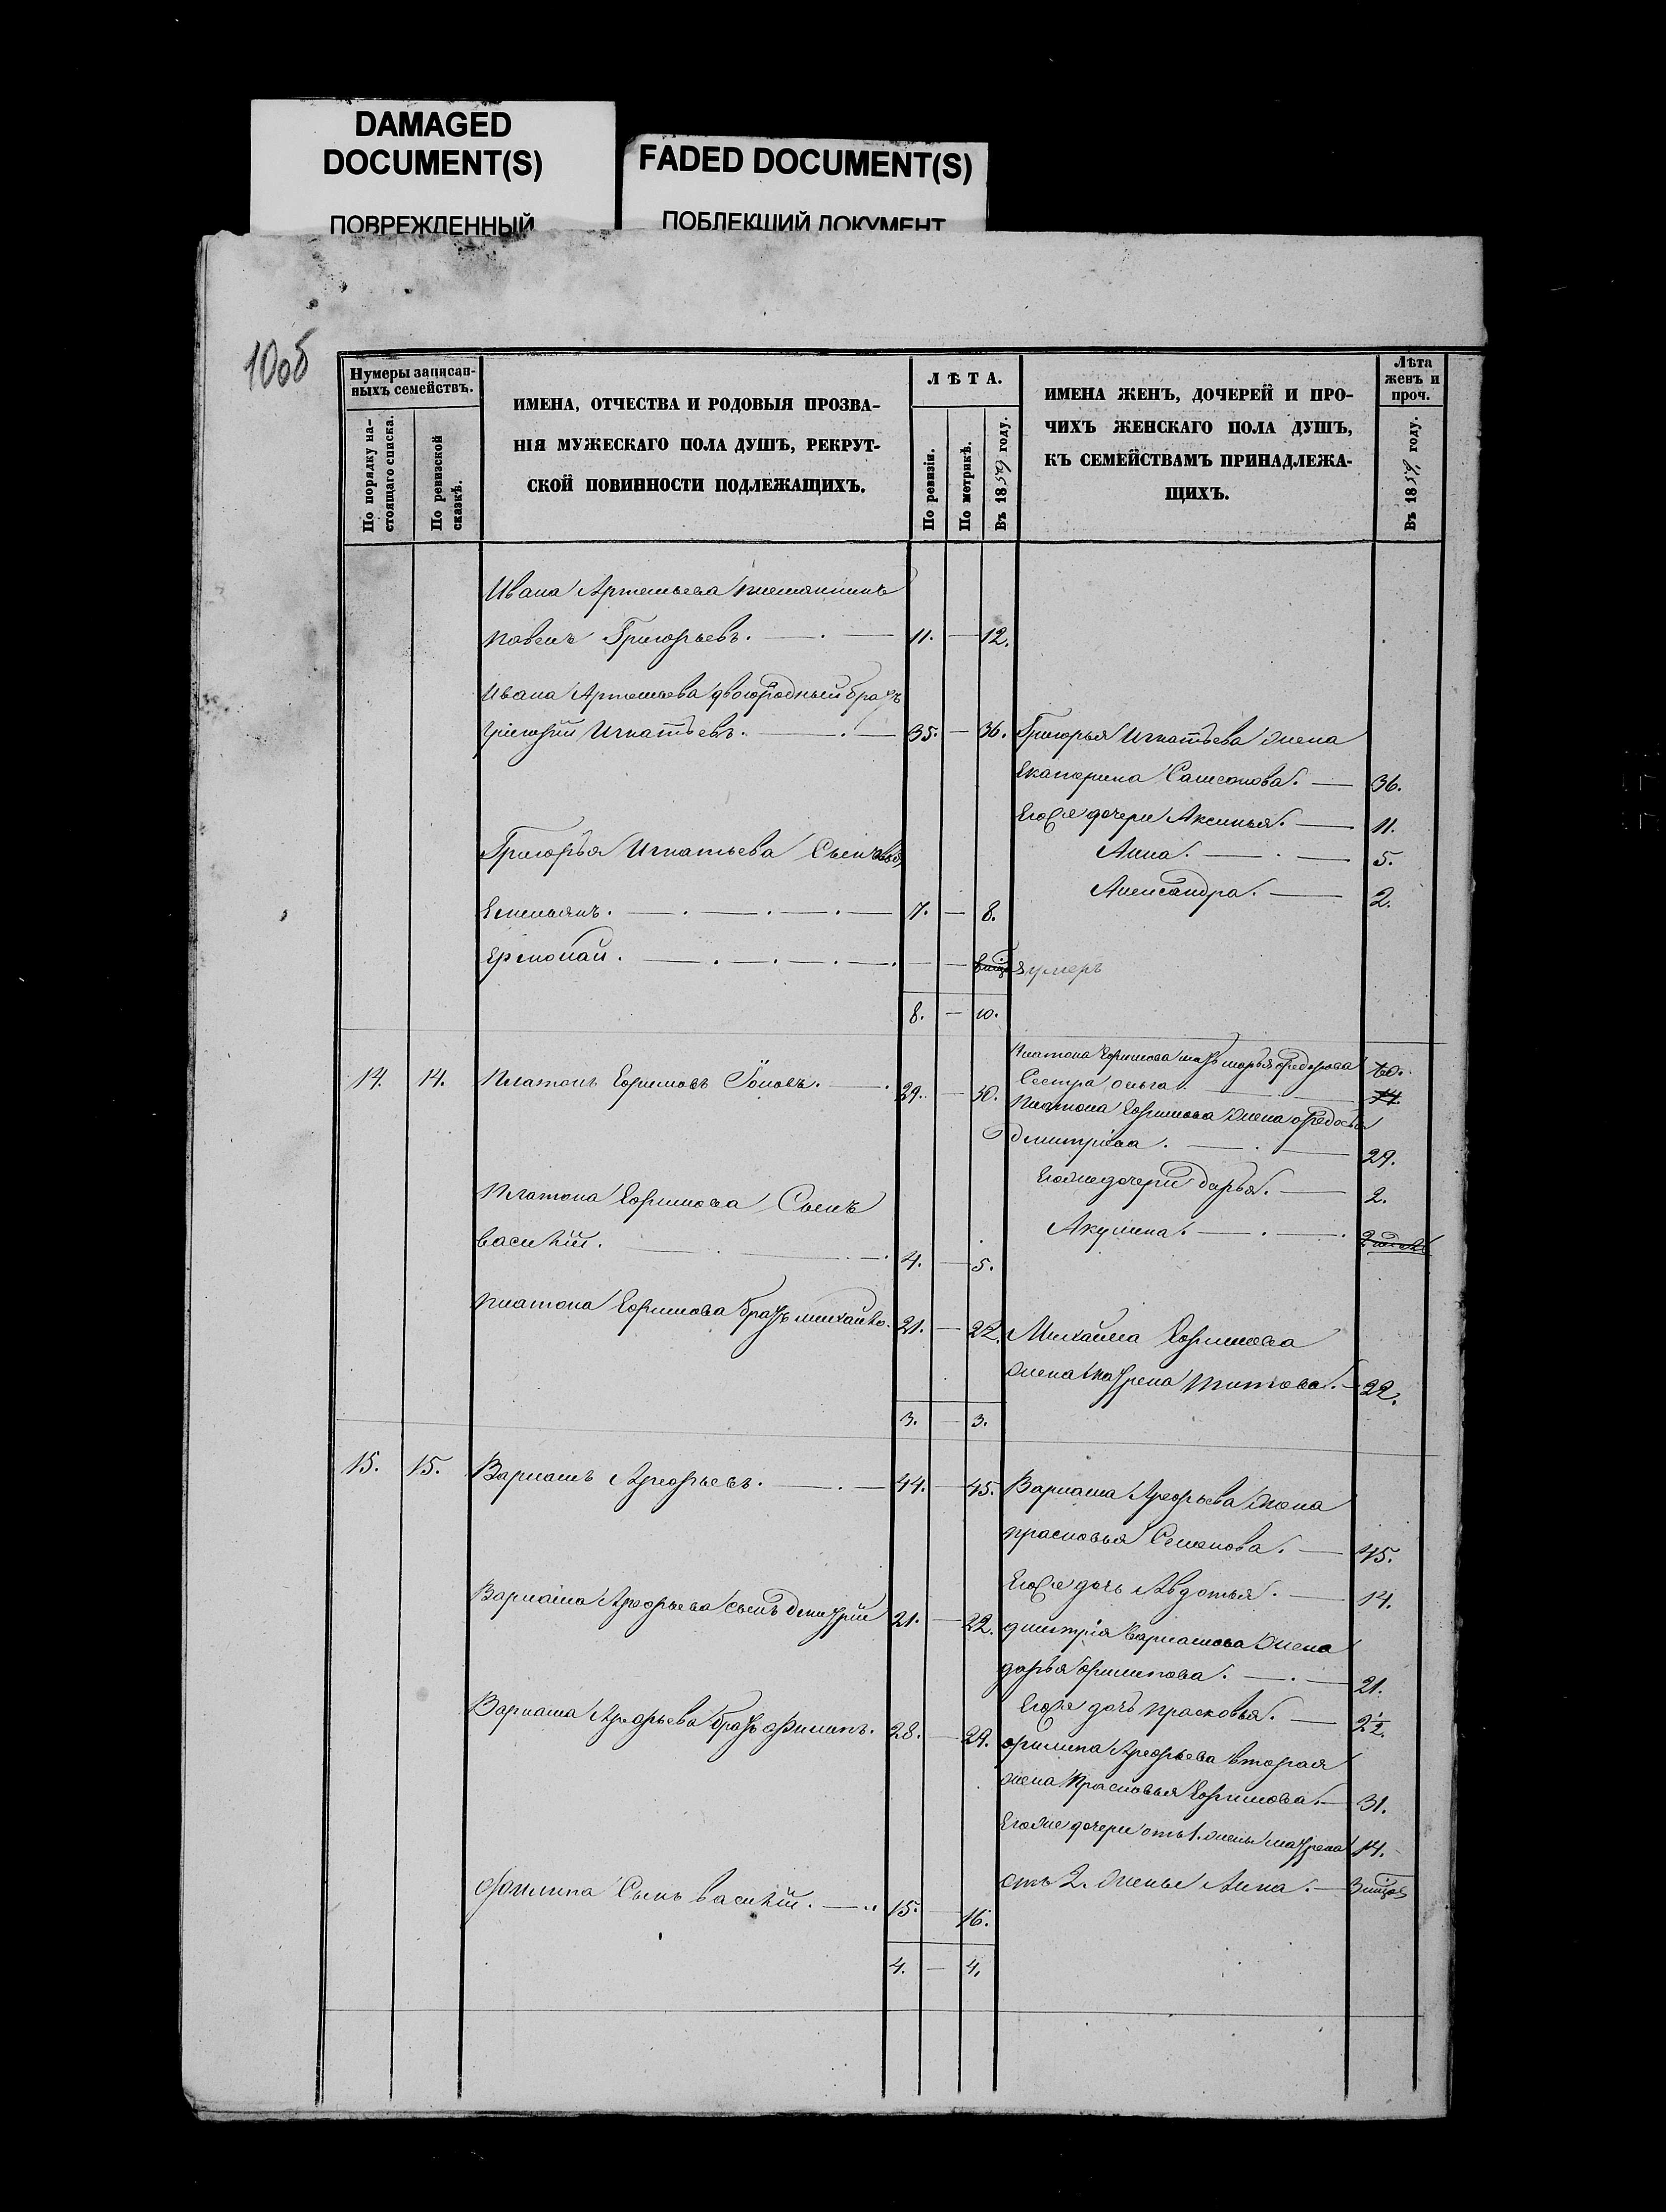 DAMAGED
DOCUMENT(S)
ПОВРЕЖДЕННЫЙ
FADED DOCUMENT(S)
ПОБЛЕКШИЙ ДОКУМЕНТ
10об
Нумеры записан-
ныхъ семействъ.
По порядку на-
стоящаго списка.
По ревизской
сказкѣ.
ИМЕНА, ОТЧЕСТВА И РОДОВЫЯ ПРОЗВА-
НІЯ МУЖЕСКАГО ПОЛА ДУШЪ, РЕКРУТ-
СКОЙ ПОВИННОСТИ ПОДЛЕЖАЩИХЪ.
ЛѢТА.
По ревизіи.
По метрикѣ.
Въ 1859 году.
ИМЕНА ЖЕНЪ, ДОЧЕРЕЙ И ПРО-
ЧИХЪ ЖЕНСКАГО ПОЛА ДУШЪ,
КЪ СЕМЕЙСТВАМЪ ПРИНАДЛЕЖА-
ЩИХЪ.
Лѣта
женъ и
проч.
Въ 1859 году.
Ивана Артемьева племянникъ
павелъ Григорьевъ. 11. — 12.
Ивана Артемьева двоюродный братъ
григорій Игнатьевъ. 35. — 36. Григорья Игнатьева жена
Екатерина Самсонова. — 36.
Его же дочери Аксинья. — 11.
Григорья Игнатьева Сыновья
Анна. — 5.
Александра. — 2.
Емельянъ. 7. — 8.
Ермолай. — умеръ
8. — 10.
14. 14. Платонъ Ефимовъ 29. — 30.
Платона Ефимова мать марья федорова 60.
Сестра ольга.
Платона Ефимова жена федосья
Дмитріева. 29.
Его же дочери дарья. — 2.
Платона Ефимова Сынъ
василій. 4. — 5.
Акулина.
платона Ефимова братъ михайло. 21. — 22. Михайла Ефимова
жена матрена титова. — 22.
3. — 3.
15. 15. Варламъ Арефьевъ. 44. — 45. Варлама Арефьева жена
прасковья Семенова. — 45.
Его же дочь Авдотья. — 14.
Варлама Арефьева сынъ дмитрій 21. — 22. дмитрія варламова жена
дарья филипова. — 21.
Его же дочь прасковья. — 2½.
Варлама Арефьева братъ филипъ. 28. — 29. филипа Арефьева вторая
жена прасковья Ефимова. — 31.
Его же дочери отъ 1. жены матрена 14.
отъ 2. жены Анна. —
филипа Сынъ василій. 15. 16.
4. — 4.